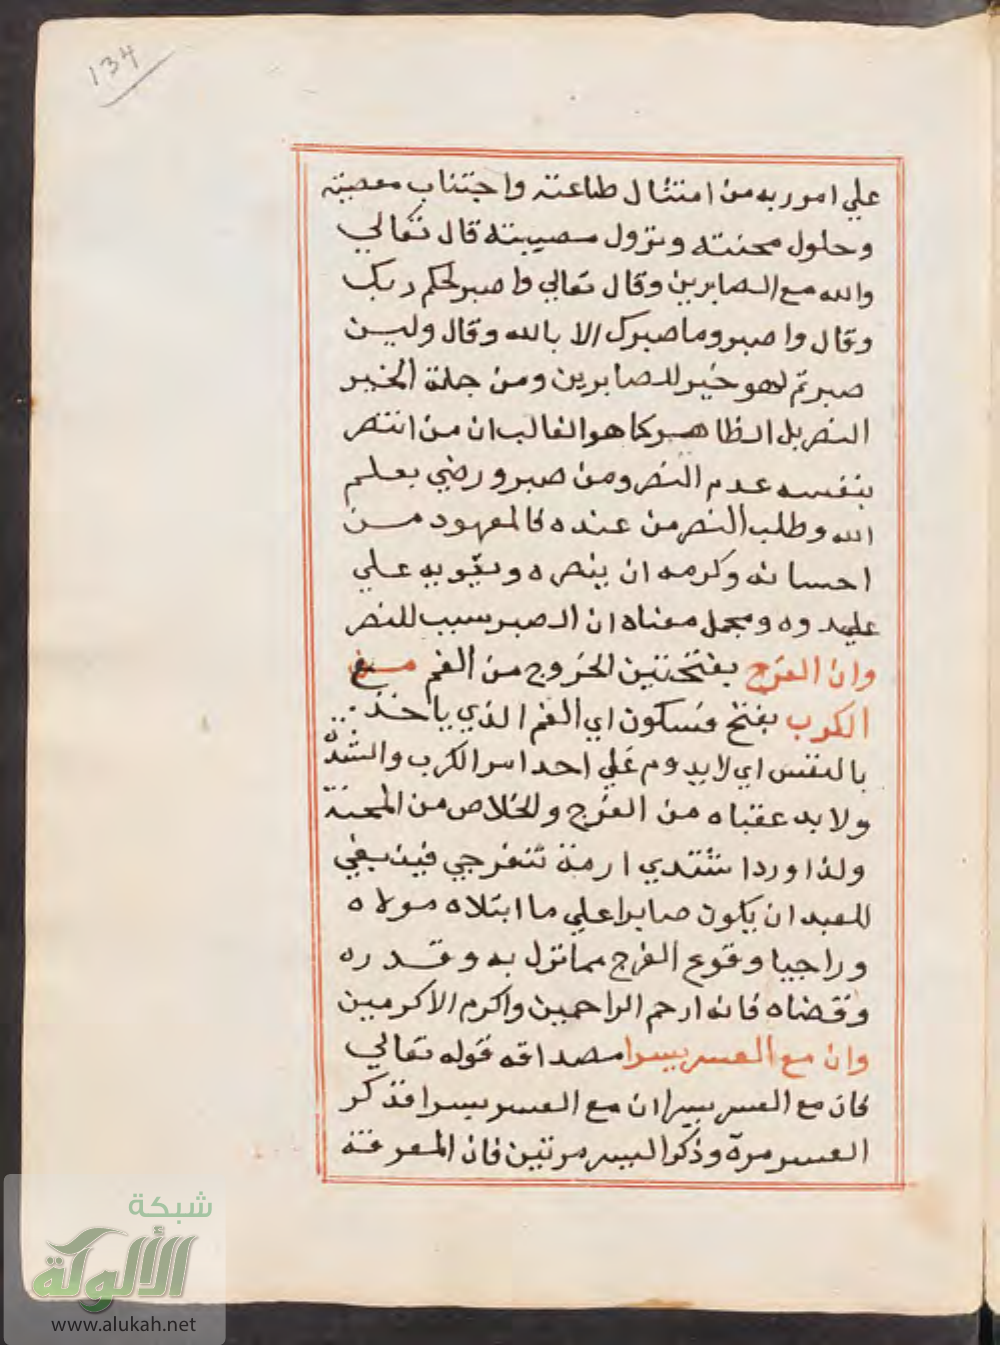 134
علي امور به من امتثال طاعته واجتناب معصيته
وحلول محنته ونزول مصيبته قال تعالي
والله مع الصابرين وقال تعالي واصبر لحكم ربك
وقال واصبر وما صبرك الا بالله وقال ولين
صبرتم لهو خير للصابرين ومن جملة الخير
النصر بل الظاهر كما هو الغالب ان من انتصر
بنفسه عدم النصر ومن صبر ورضي بعلم
الله وطلب النصر من عنده فالمعهود من
احسانه وكرمه ان ينصره ويقويه علي
عدوه ومجمل معناه ان الصبر سبب للنصر
وان الفرج بفتحتين الخروج من الغم مع
الكرب بفتح فسكون اي الغم الذي ياخذ
بالنفس اي لا يدوم علي احد اسر الكرب والشدة
ولا بد عقباه من الفرج والخلاص من المحنة
ولذا ورد اشتدي ازمة تنفرجي فينبغي
للعبد ان يكون صابرا علي ما ابتلاه مولاه
وراجيا وقوع الفرج مما نزل به وقدره
وقضاه فانه ارحم الراحمين واكرم الاكرمين
وان مع العسر يسرا مصداقه قوله تعالي
فان مع العسر يسرا ان مع العسر يسرا فذكر
العسر مرة وذكر اليسر مرتين فان المعرفة
شبكة
الألوكة
www.alukah.net